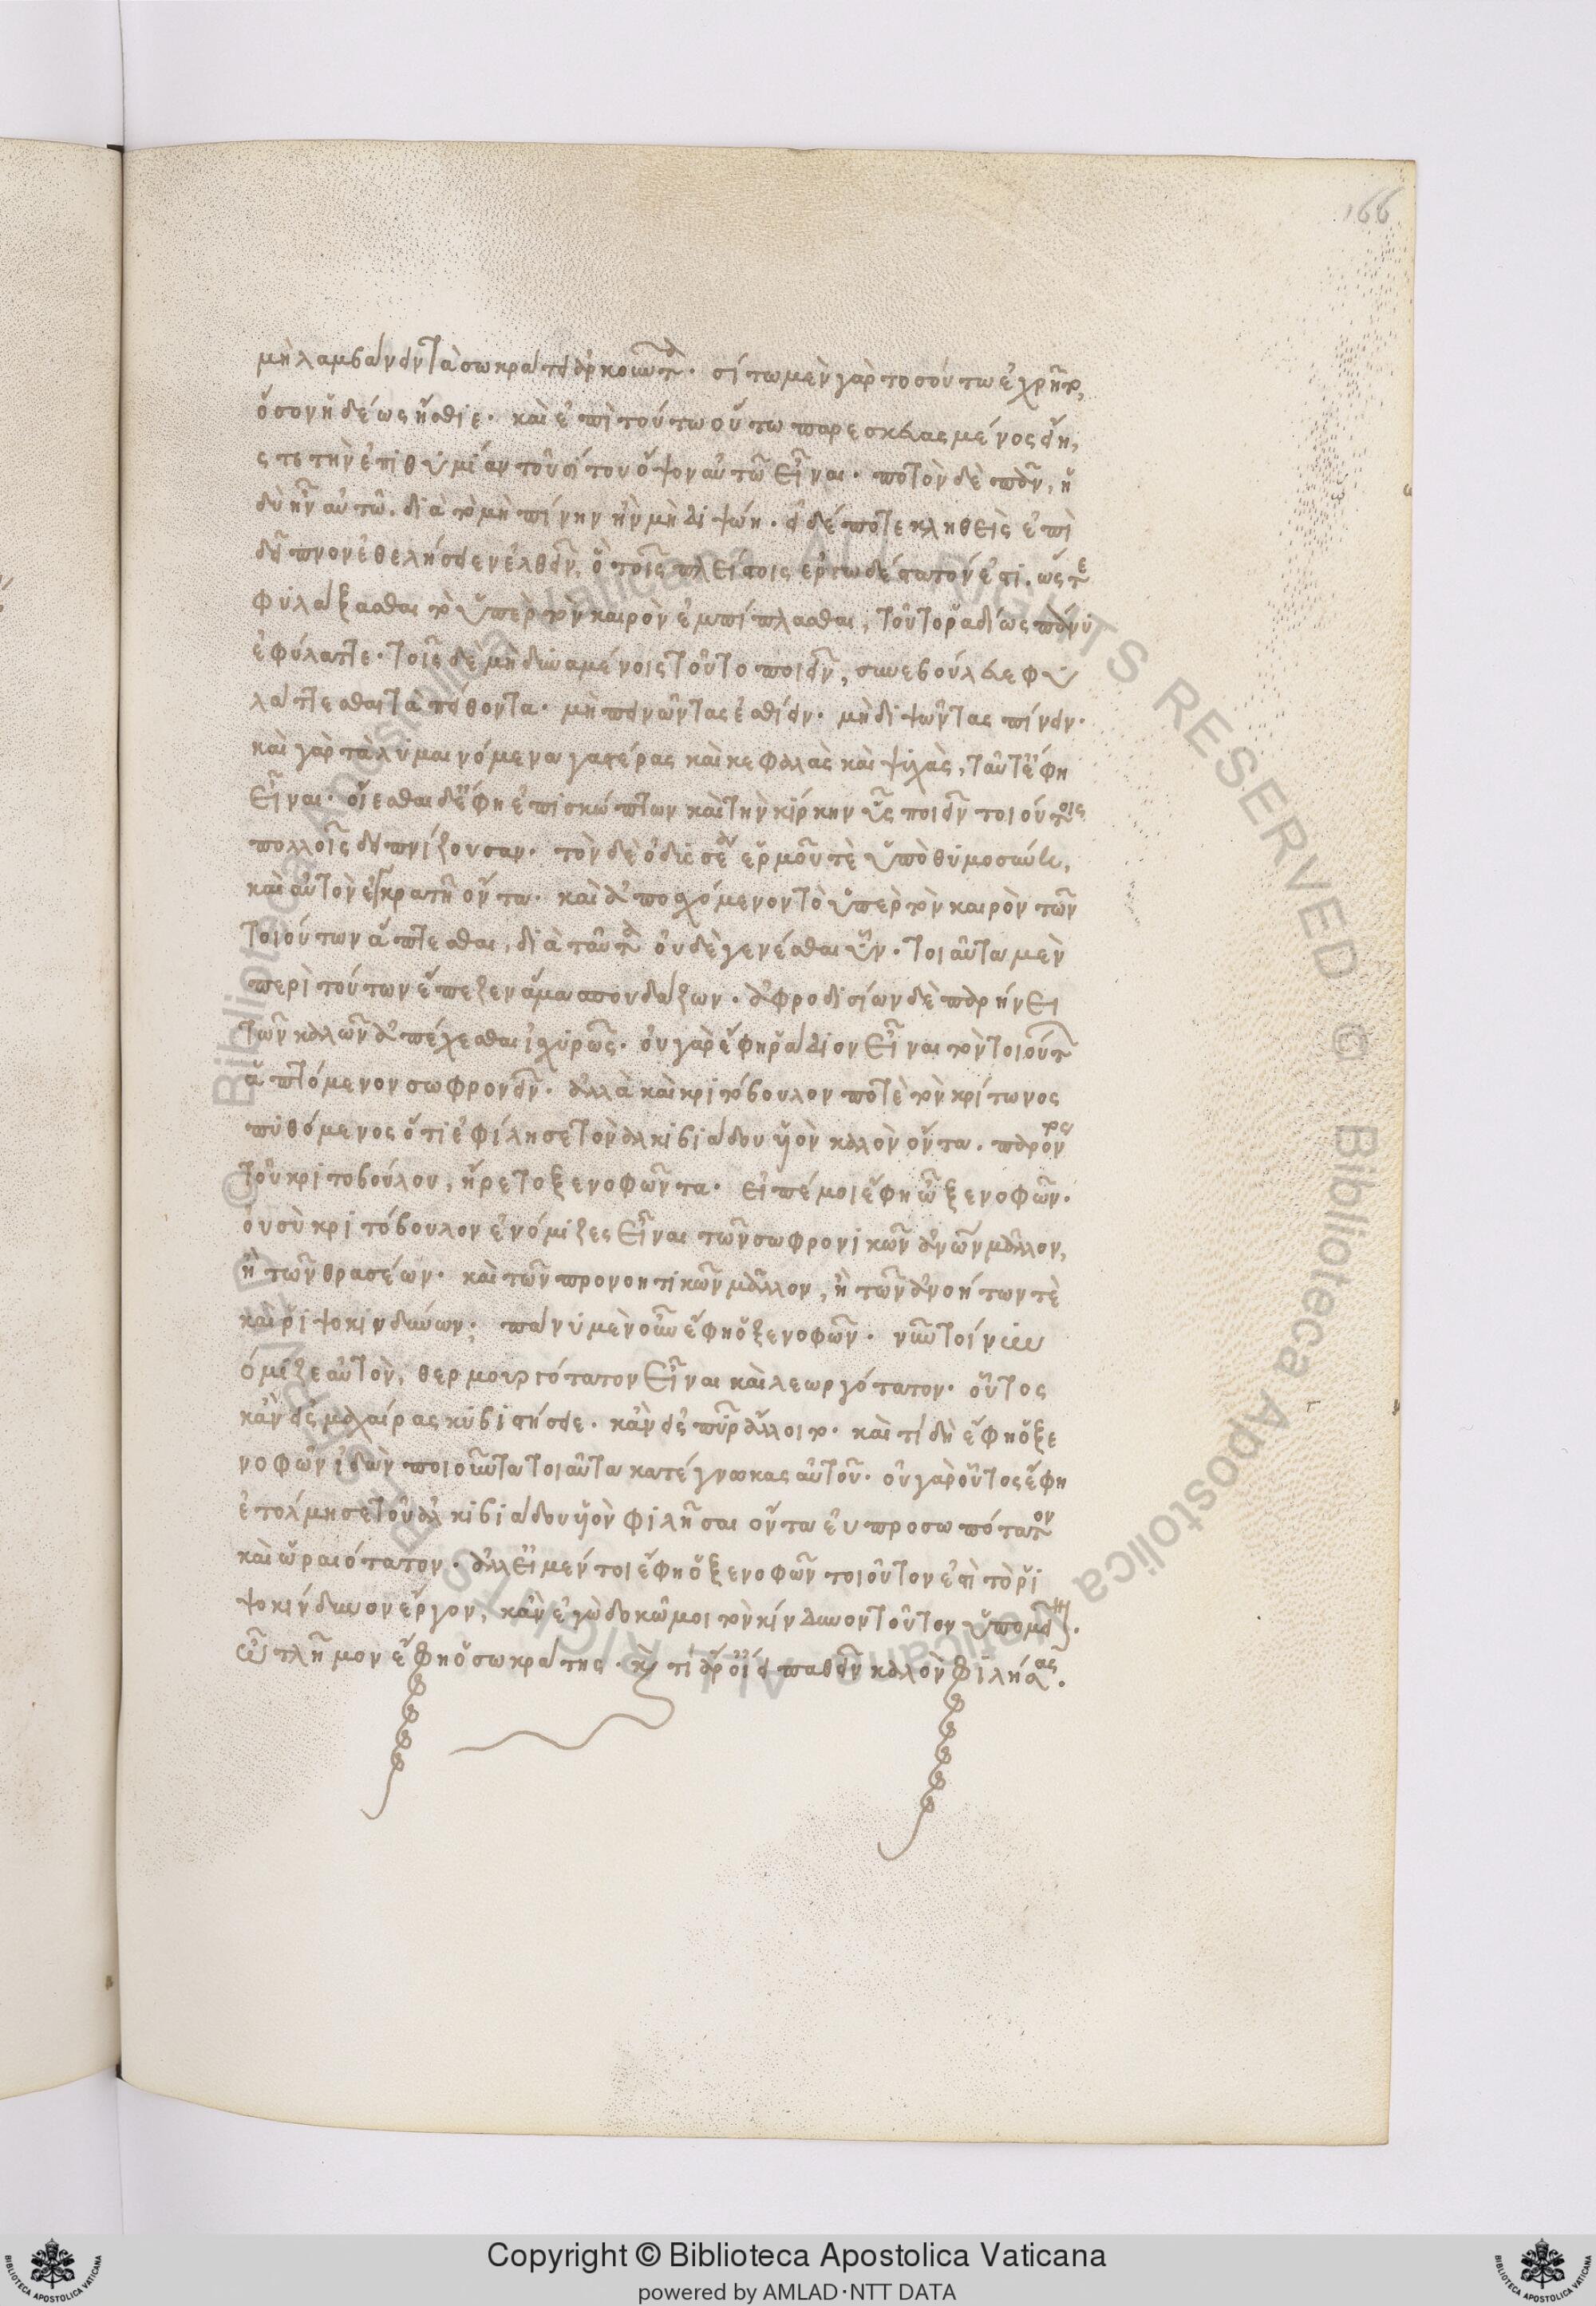 166
μὴ λαμβάνειν τὰ σωκράτει ἀρκοῦντα. σίτω μὲν γὰρ τοσούτω ἐχρῆτο,
ὅσον ἡδέως ἤσθιε. καὶ ἐπὶ τούτω οὕτω παρεσκευασμένος ᾔει,
ὥστε τὴν ἐπιθυμίαν τοῦ σίτου ὄψον αὐτῶ εἶναι. ποτὸν δὲ πᾶν, ἡ
δὺ ἦν αὐτῶ. διὰ τὸ μὴ πίνην ἢν μὴ διψώη. εἰ δέ ποτε κληθεὶς ἐπὶ
δεῖπνον ἐθελήσειεν ἐλθεῖν, ὃ τοῖς πλείστοις ἐργωδέστατόν ἐστι. ὥστε
φυλάξασθαι τὸ ὑπὲρ τὸν καιρὸν ἐμπίπλασθαι, τοῦτο ῥαδίως πάνυ
ἐφύλαττε. τοῖς δὲ μὴ δυναμένοις τοῦτο ποιεῖν, συνεβούλευε φυ
λάττεσθαι τὰ πείθοντα. μὴ πεινῶντας ἐσθίειν. μὴ διψῶντας πίνειν.
καὶ γὰρ τὰ λυμαινόμενα γαστέρας καὶ κεφαλὰς καὶ ψυχὰς, ταῦτ ἔφη
εἶναι. οἴεσθαι δ ἔφη ἐπισκώπτων καὶ τὴν κίρκην ὗς ποιεῖν τοιούτοις
πολλοῖς δειπνίζουσαν. τὸν δὲ ὀδυσσέα ἑρμοῦ τὲ ὑποθυμοσύνη,
καὶ αὐτὸν ἐγκρατῆ ὄντα. καὶ ἀποσχόμενον τὸ ὑπὲρ τὸν καιρὸν τῶν
τοιούτων ἅπτεσθαι, διὰ ταῦτα οὐδὲ γενέσθαι ὗν. τοιαῦτα μὲν
περὶ τούτων ἔπαιζεν ἅμα σπουδάζων. ἀφροδισίων δὲ παρήνει
τῶν καλῶν ἀπέχεσθαι ἰσχυρῶς. οὐ γὰρ ἔφη ῥάδιον εἶναι τὸν τοιούτων
ἁπτόμενον σωφρονεῖν. ἀλλὰ καὶ κριτόβουλον ποτὲ τὸν κρίτωνος
πυθόμενος ὅτι ἐφίλησε τὸν ἀλκιβιάδου υἱὸν καλὸν ὄντα. παρόντος
τοῦ κριτοβούλου, ἤρετο ξενοφῶντα. εἰπέ μοι ἔφη ὦ ξενοφῶν.
οὐ σὺ κριτόβουλον ἐνόμιζες εἶναι τῶν σωφρονικῶν ἀνων μᾶλλον,
ἢ τῶν θρασέων. καὶ τῶν προνοητικῶν μᾶλλον, ἢ τῶν ἀνοήτων τὲ
καὶ ῥιψοκινδύνων; πάνυ μὲν οὖν ἔφη ὁ ξενοφῶν. νῦν τοίνυν
νόμιζε αὐτὸν, θερμουργότατον εἶναι καὶ λεωργότατον. οὗτος
κἂν εἰς μαχαίρας κυβιστήσειε. κἂν εἰς πῦρ ἅλλοιτο. καὶ τί δὴ ἔφη ὁ ξε
νοφῶν ἰδὼν ποιοῦντα τοιαῦτα κατέγνωκας αὐτοῦ. οὐ γὰρ οὗτος ἔφη
ἐτόλμησε τοῦ ἀλκιβιάδου υἱὸν φιλῆσαι ὄντα εὐπροσωπότατον
καὶ ὡραιότατον. ἀλλ εἰ μέν τοι ἔφη ὁ ξενοφῶν τοιοῦτον ἐστὶ τὸ ῥι
ψοκίνδυνον ἔργον, κἂν ἐγὼ δοκῶ μοι τὸν κίνδυνον τοῦτον ὑπομεῖναι.
ὦ τλῆμον ἔφη ὁ σωκράτης. καὶ τί ἂν οἴει παθεῖν καλὸν φιλήσας.
Copyright © Biblioteca Apostolica Vaticana
powered by AMLAD·NTT DATA